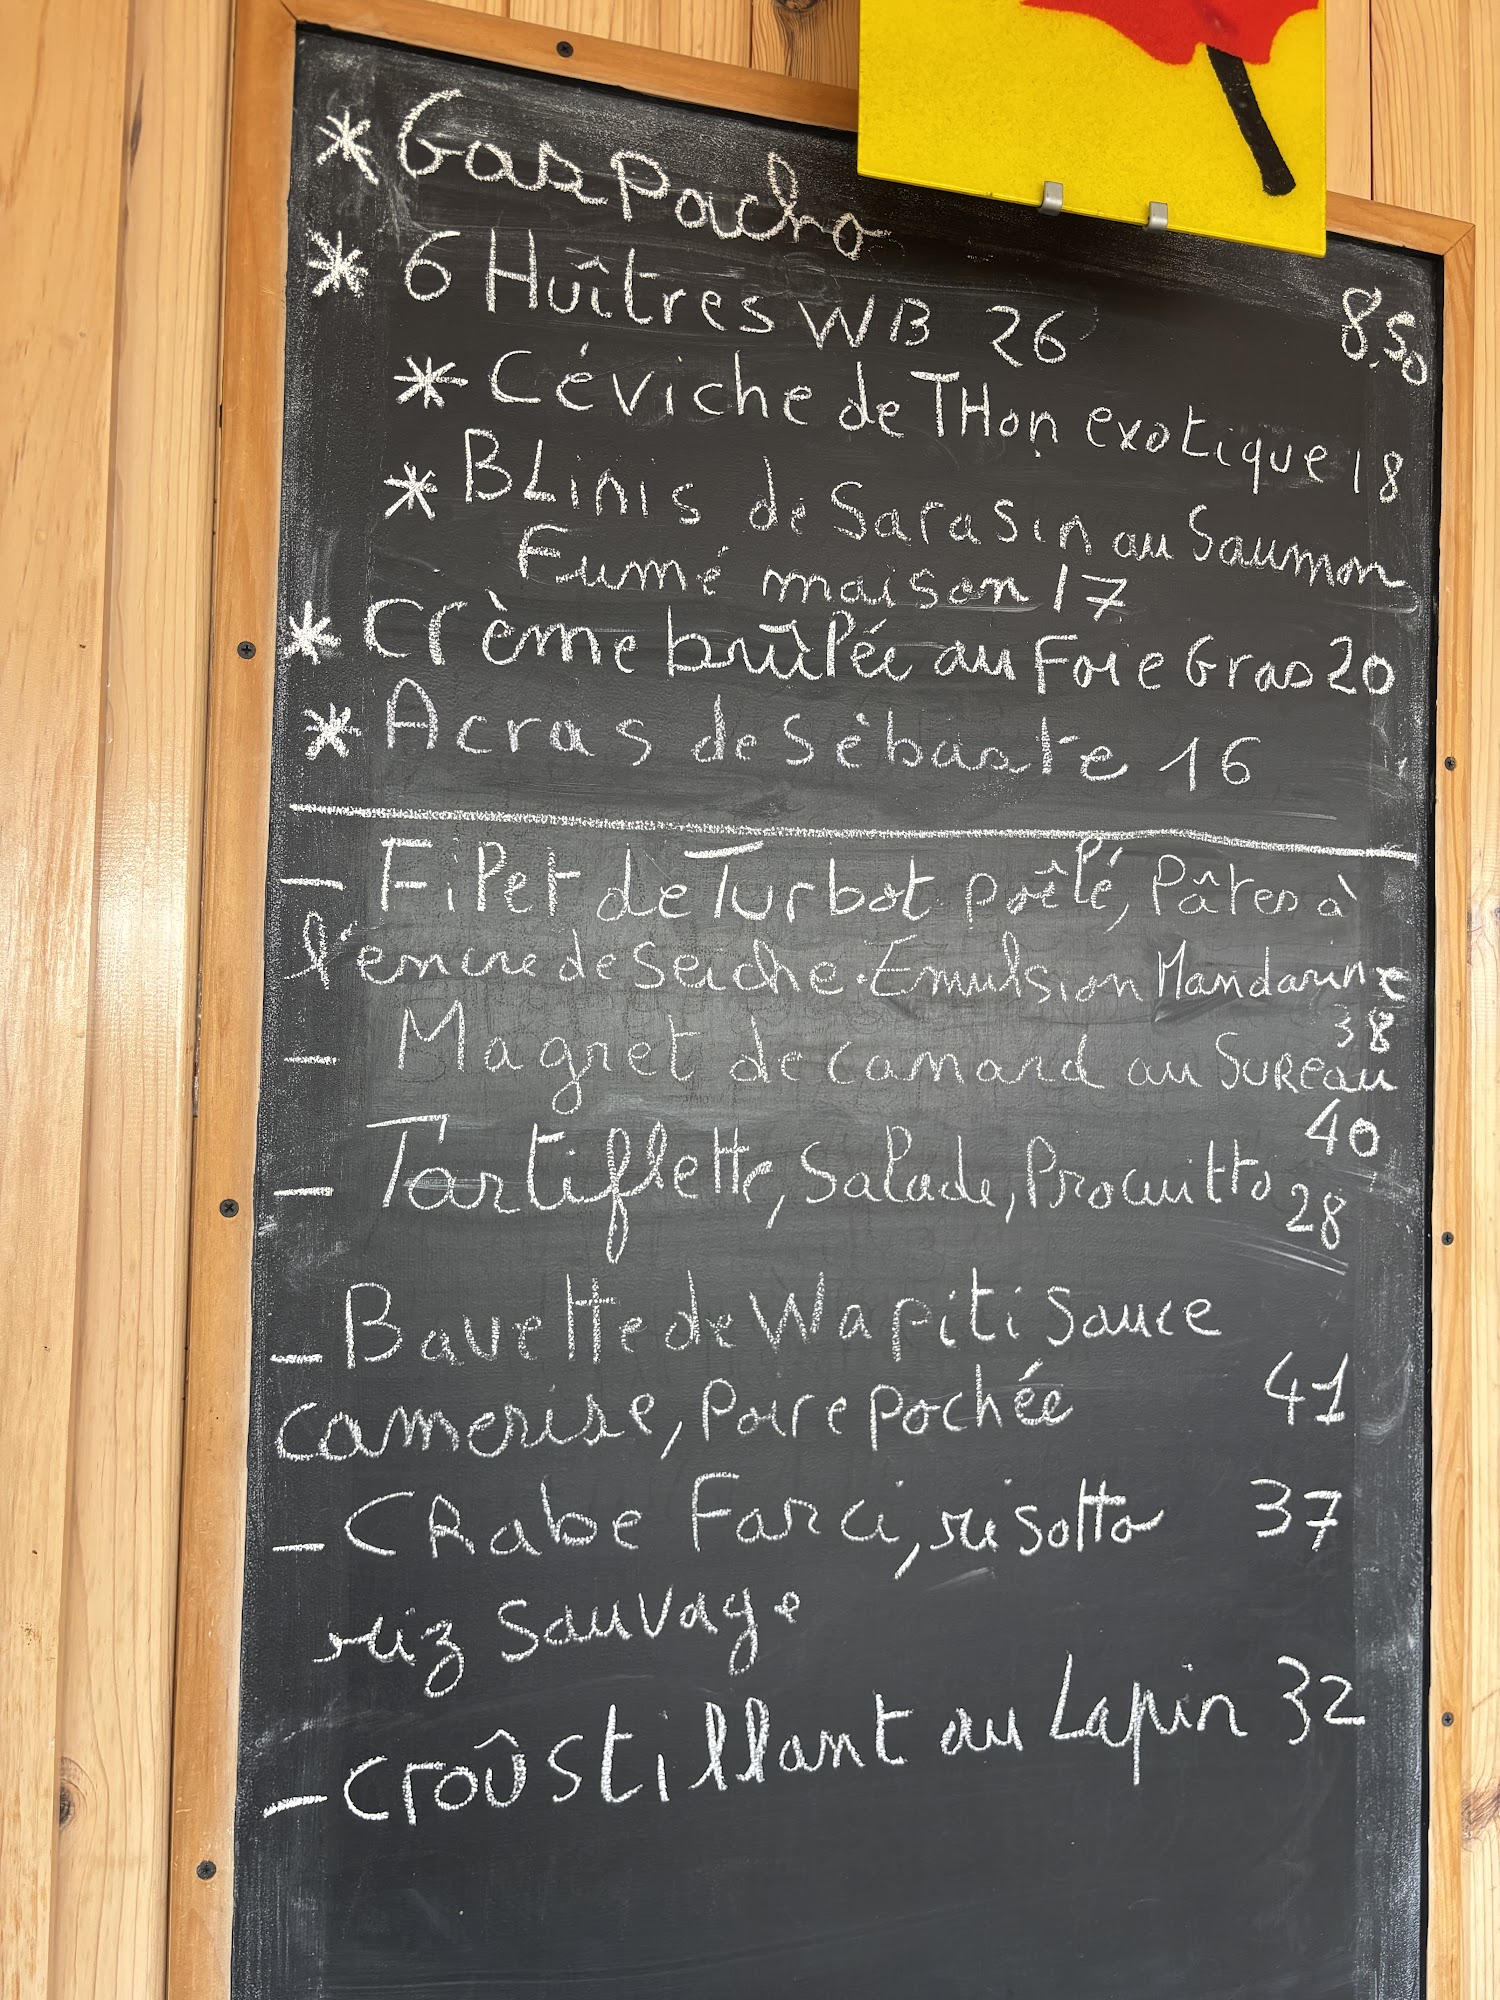 * Gaspacho
8,50
* 6 Huîtres WB 26
* Céviche de THon exotique 18
* BLinis de Sarasin au Saumon
Fumé maison 17
* Crème brûlée au Foie Gras 20
* Acras de Sébaste 16
- Filet de Turbot poêlé, Pâtes à
l'encre de Seiche. Emulsion Mandarine
38
- Magret de canard au SUREau
40
- Tartiflette, Salade, Procuitto
28
- Bavette de Wapiti Sauce
camerise, Poire pochée 41
- CRabe Farci, risotto 37
riz Sauvage
- croûstillant au Lapin 32